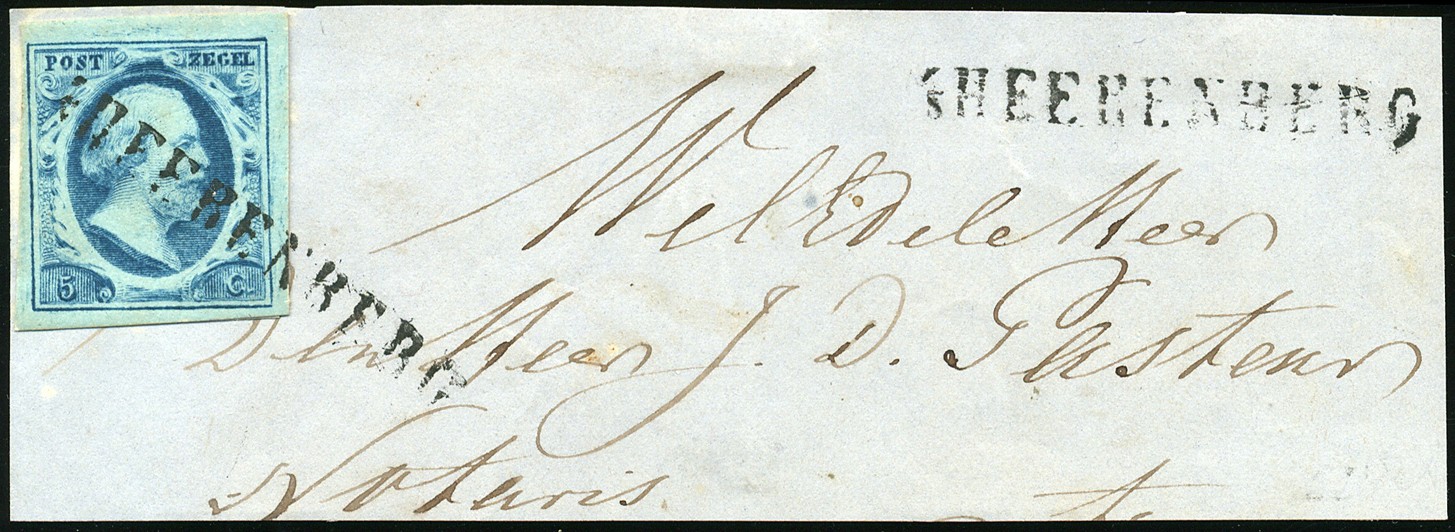 POST ZEGEL
5 C.
sHEERENBERG
sHEERENBERG
WelEdele Heer
Den Heer J. D. Pasteur
Notaris
te